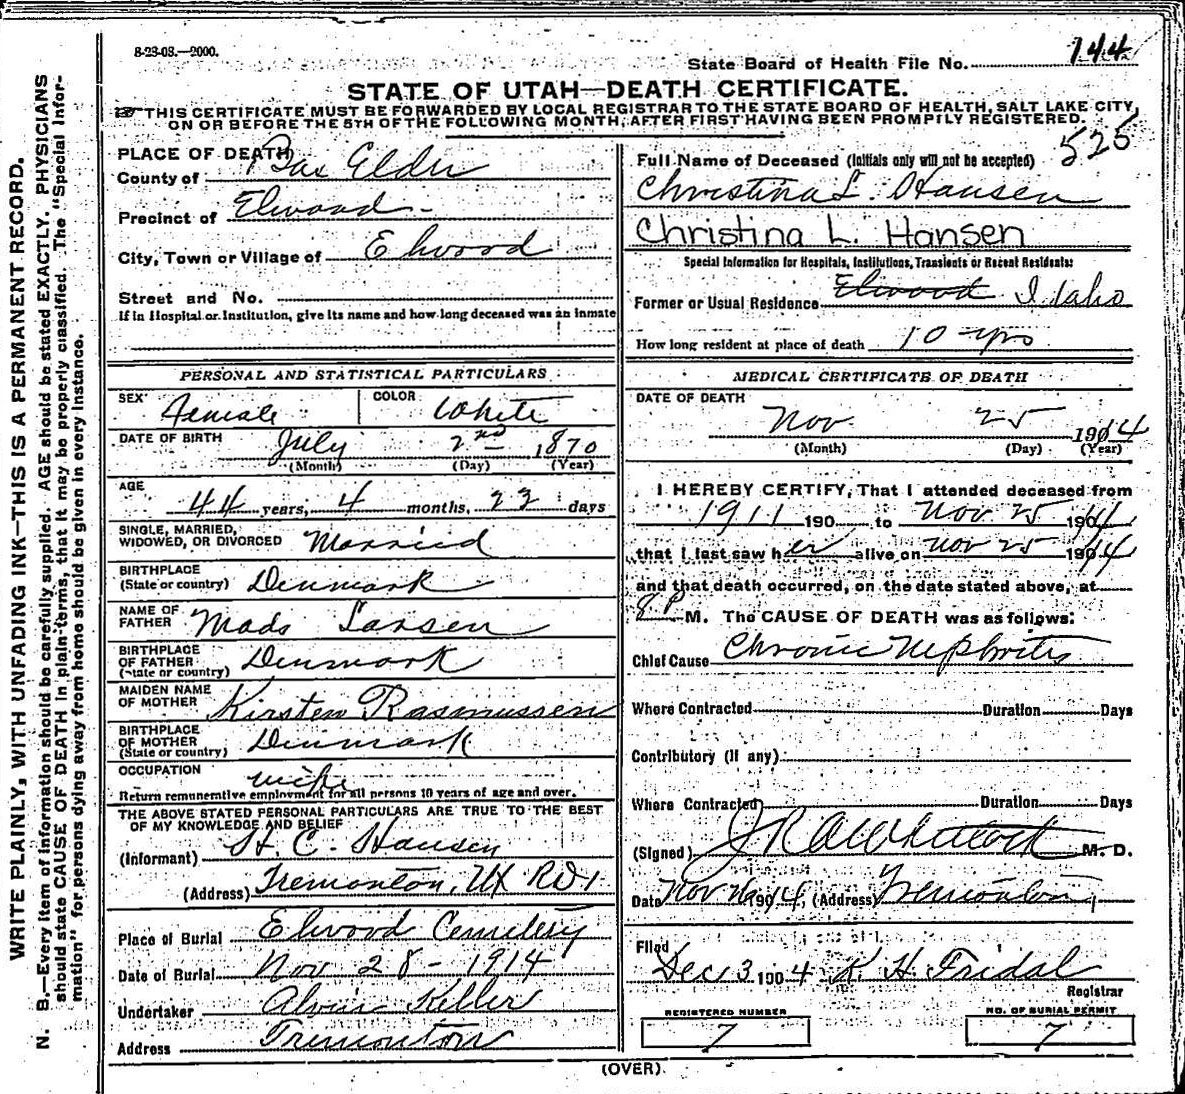 8-23-08.—2000.
State Board of Health File No. 144
STATE OF UTAH—DEATH CERTIFICATE.
THIS CERTIFICATE MUST BE FORWARDED BY LOCAL REGISTRAR TO THE STATE BOARD OF HEALTH, SALT LAKE CITY,
ON OR BEFORE THE 5TH OF THE FOLLOWING MONTH, AFTER FIRST HAVING BEEN PROMPTLY REGISTERED.
525
PLACE OF DEATH
County of Box Elder
Precinct of Elwood
City, Town or Village of Elwood
Street and No.
If in Hospital or Institution, give its name and how long deceased was an inmate
Full Name of Deceased (Initials only will not be accepted)
Christina L. Hansen
Christina L. Hansen
Special Information for Hospitals, Institutions, Transients or Recent Residents:
Former or Usual Residence Elwood Idaho
How long resident at place of death 10 yrs
PERSONAL AND STATISTICAL PARTICULARS
SEX Female COLOR White
DATE OF BIRTH July 2nd 1870
(Month) (Day) (Year)
AGE
44 years, 4 months, 23 days
SINGLE, MARRIED,
WIDOWED, OR DIVORCED Married
BIRTHPLACE
(State or country) Denmark
NAME OF
FATHER Mads Larsen
BIRTHPLACE
OF FATHER
(State or country) Denmark
MAIDEN NAME
OF MOTHER Kirsten Rasmussen
BIRTHPLACE
OF MOTHER
(State or country) Denmark
OCCUPATION
Return remunerative employment for all persons 10 years of age and over.
THE ABOVE STATED PERSONAL PARTICULARS ARE TRUE TO THE BEST
OF MY KNOWLEDGE AND BELIEF
(Informant) H. C. Hansen
(Address) Tremonton, Ut RD1
Place of Burial Elwood Cemetery
Date of Burial Nov 28 - 1914
Undertaker Alvin Keller
Address Tremonton
MEDICAL CERTIFICATE OF DEATH
DATE OF DEATH
Nov 25 1914
(Month) (Day) (Year)
I HEREBY CERTIFY, That I attended deceased from
1911 190 to Nov 25 1914
that I last saw her alive on Nov 25 1914
and that death occurred, on the date stated above, at
8 P M. The CAUSE OF DEATH was as follows:
Chief Cause Chronic Nephritis
Where Contracted Duration Days
Contributory (if any)
Where Contracted Duration Days
(Signed) M. D.
Date Nov 26 1914, (Address) Tremonton,
Filed
Dec 3 1904 K. H. Fridal
Registrar
REGISTERED NUMBER
7
NO. OF BURIAL PERMIT
7
(OVER)
WRITE PLAINLY, WITH UNFADING INK—THIS IS A PERMANENT RECORD.
N. B.—Every item of information should be carefully supplied. AGE should be stated EXACTLY. PHYSICIANS
should state CAUSE OF DEATH in plain terms, that it may be properly classified. The "Special Infor-
mation" for persons dying away from home should be given in every instance.